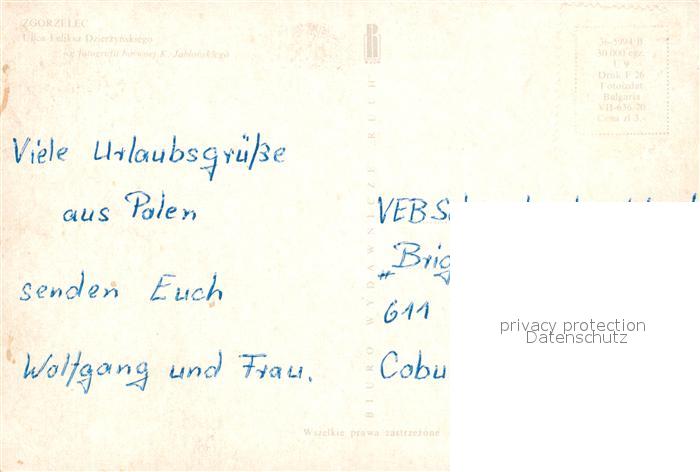 ZGORZELEC
Ulica Feliksa Dzierżyńskiego
wg fotografii barwnej K. Jabłońskiego
36-5994 B
30 000 egz.
U 9
Druk F 26
Fotoizdat
Bulgaria
VII-636-70
Cena zł 3,-
Viele Urlaubsgrüße
aus Polen
senden Euch
Wolfgang und Frau.
BIURO WYDAWNICZE RUCH
VEB
"Brig
611
Cobu
privacy protection
Datenschutz
Wszelkie prawa zastrzeżone